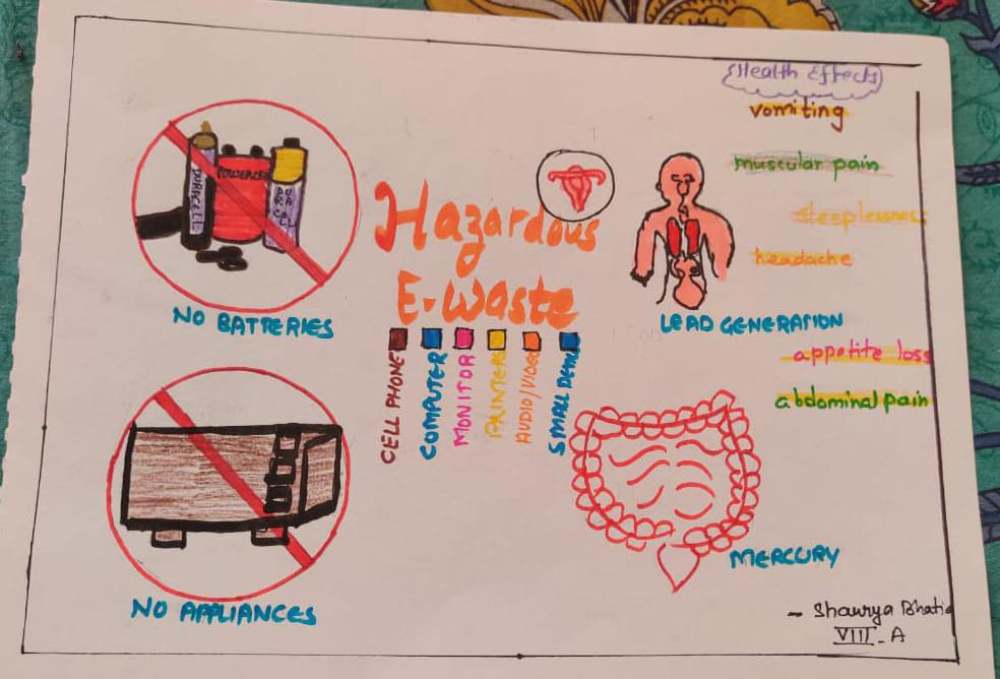 Health Effects
vomiting
muscular pain
sleeplessness
headache
appetite loss
abdominal pain
DURACELL
Hazardous
E-Waste
CELL PHONE
COMPUTER
MONITOR
PRINTERS
AUDIO/VIDEO
NO BATTERIES
LEAD GENERATION
NO APPLIANCES
MERCURY
~ Shaurya Bhatia
VIII - A